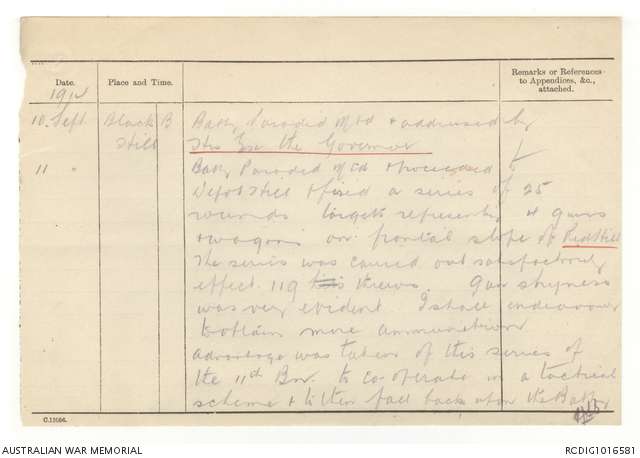 Date.
Place and Time.
Remarks or References
to Appendices, &c.,
attached.
1914
10 Sept Black B Baty Paraded Mtd + addressed by
Hill His Ex the Governor
11 " Baty Paraded Mtd + proceeded to
Depot Hill + fired a series of 25
rounds targets representg 4 guns
+ wagons on frontal slope of Red Hill
The series was carried out satisfactorily
effect 119 Gun shyness
was very evident I shall endeavour
to obtain more ammunition
Advantage was taken of this series of
the 11th Bn. to co-operate in a tactical
scheme + to then fall back upon the Baty
C.11086.
AUSTRALIAN WAR MEMORIAL
RCDIG1016581